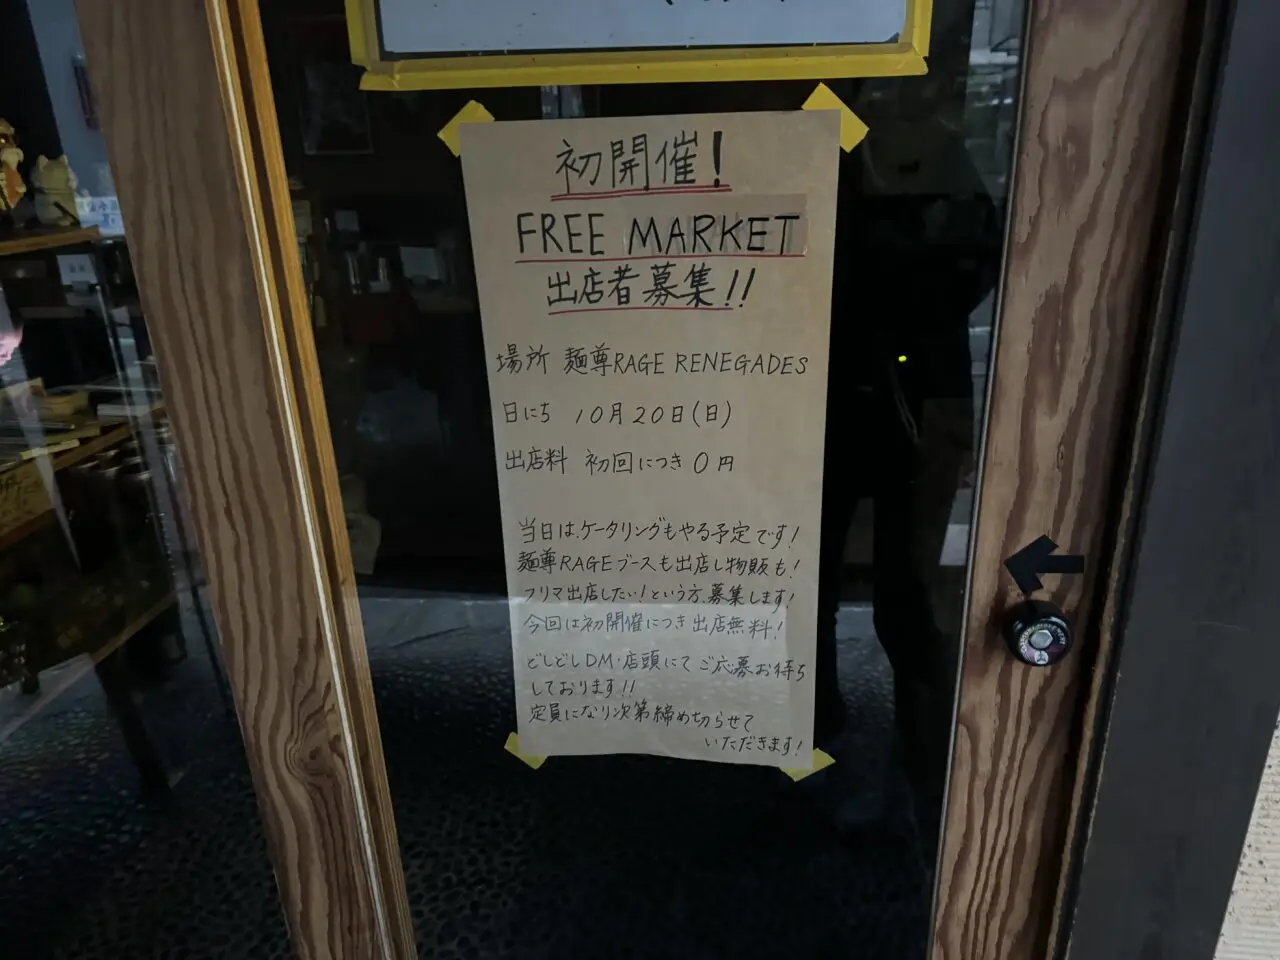 初開催!
FREE MARKET
出店者募集!!
場所 麺尊RAGE RENEGADES
日にち 10月20日(日)
出店料 初回につき0円
当日はケータリングもやる予定です!
麺尊RAGEブースも出店し物販も!
フリマ出店したい!という方、募集します!
今回は初開催につき出店無料!
どしどしDM・店頭にてご応募お待ち
しております!!
定員になり次第締め切らせて
いただきます!